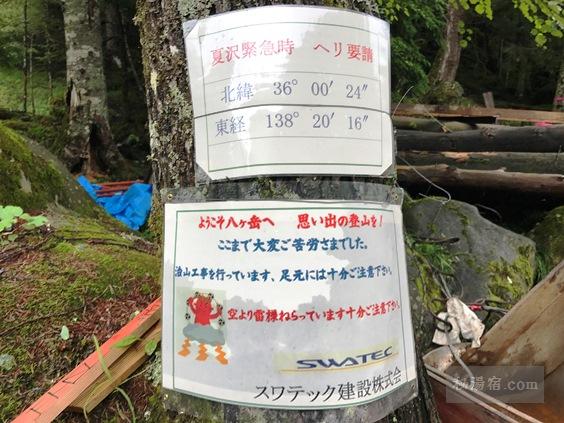 夏沢緊急時　ヘリ要請
北緯　36° 00′ 24″
東経　138° 20′ 16″
ようこそ八ヶ岳へ　思い出の登山を!
ここまで大変ご苦労さまでした。
治山工事を行っています、足元には十分ご注意下さい。
空より雷様ねらっています十分ご注意下さい!
SWATEC
スワテック建設株式会
秘湯宿.com